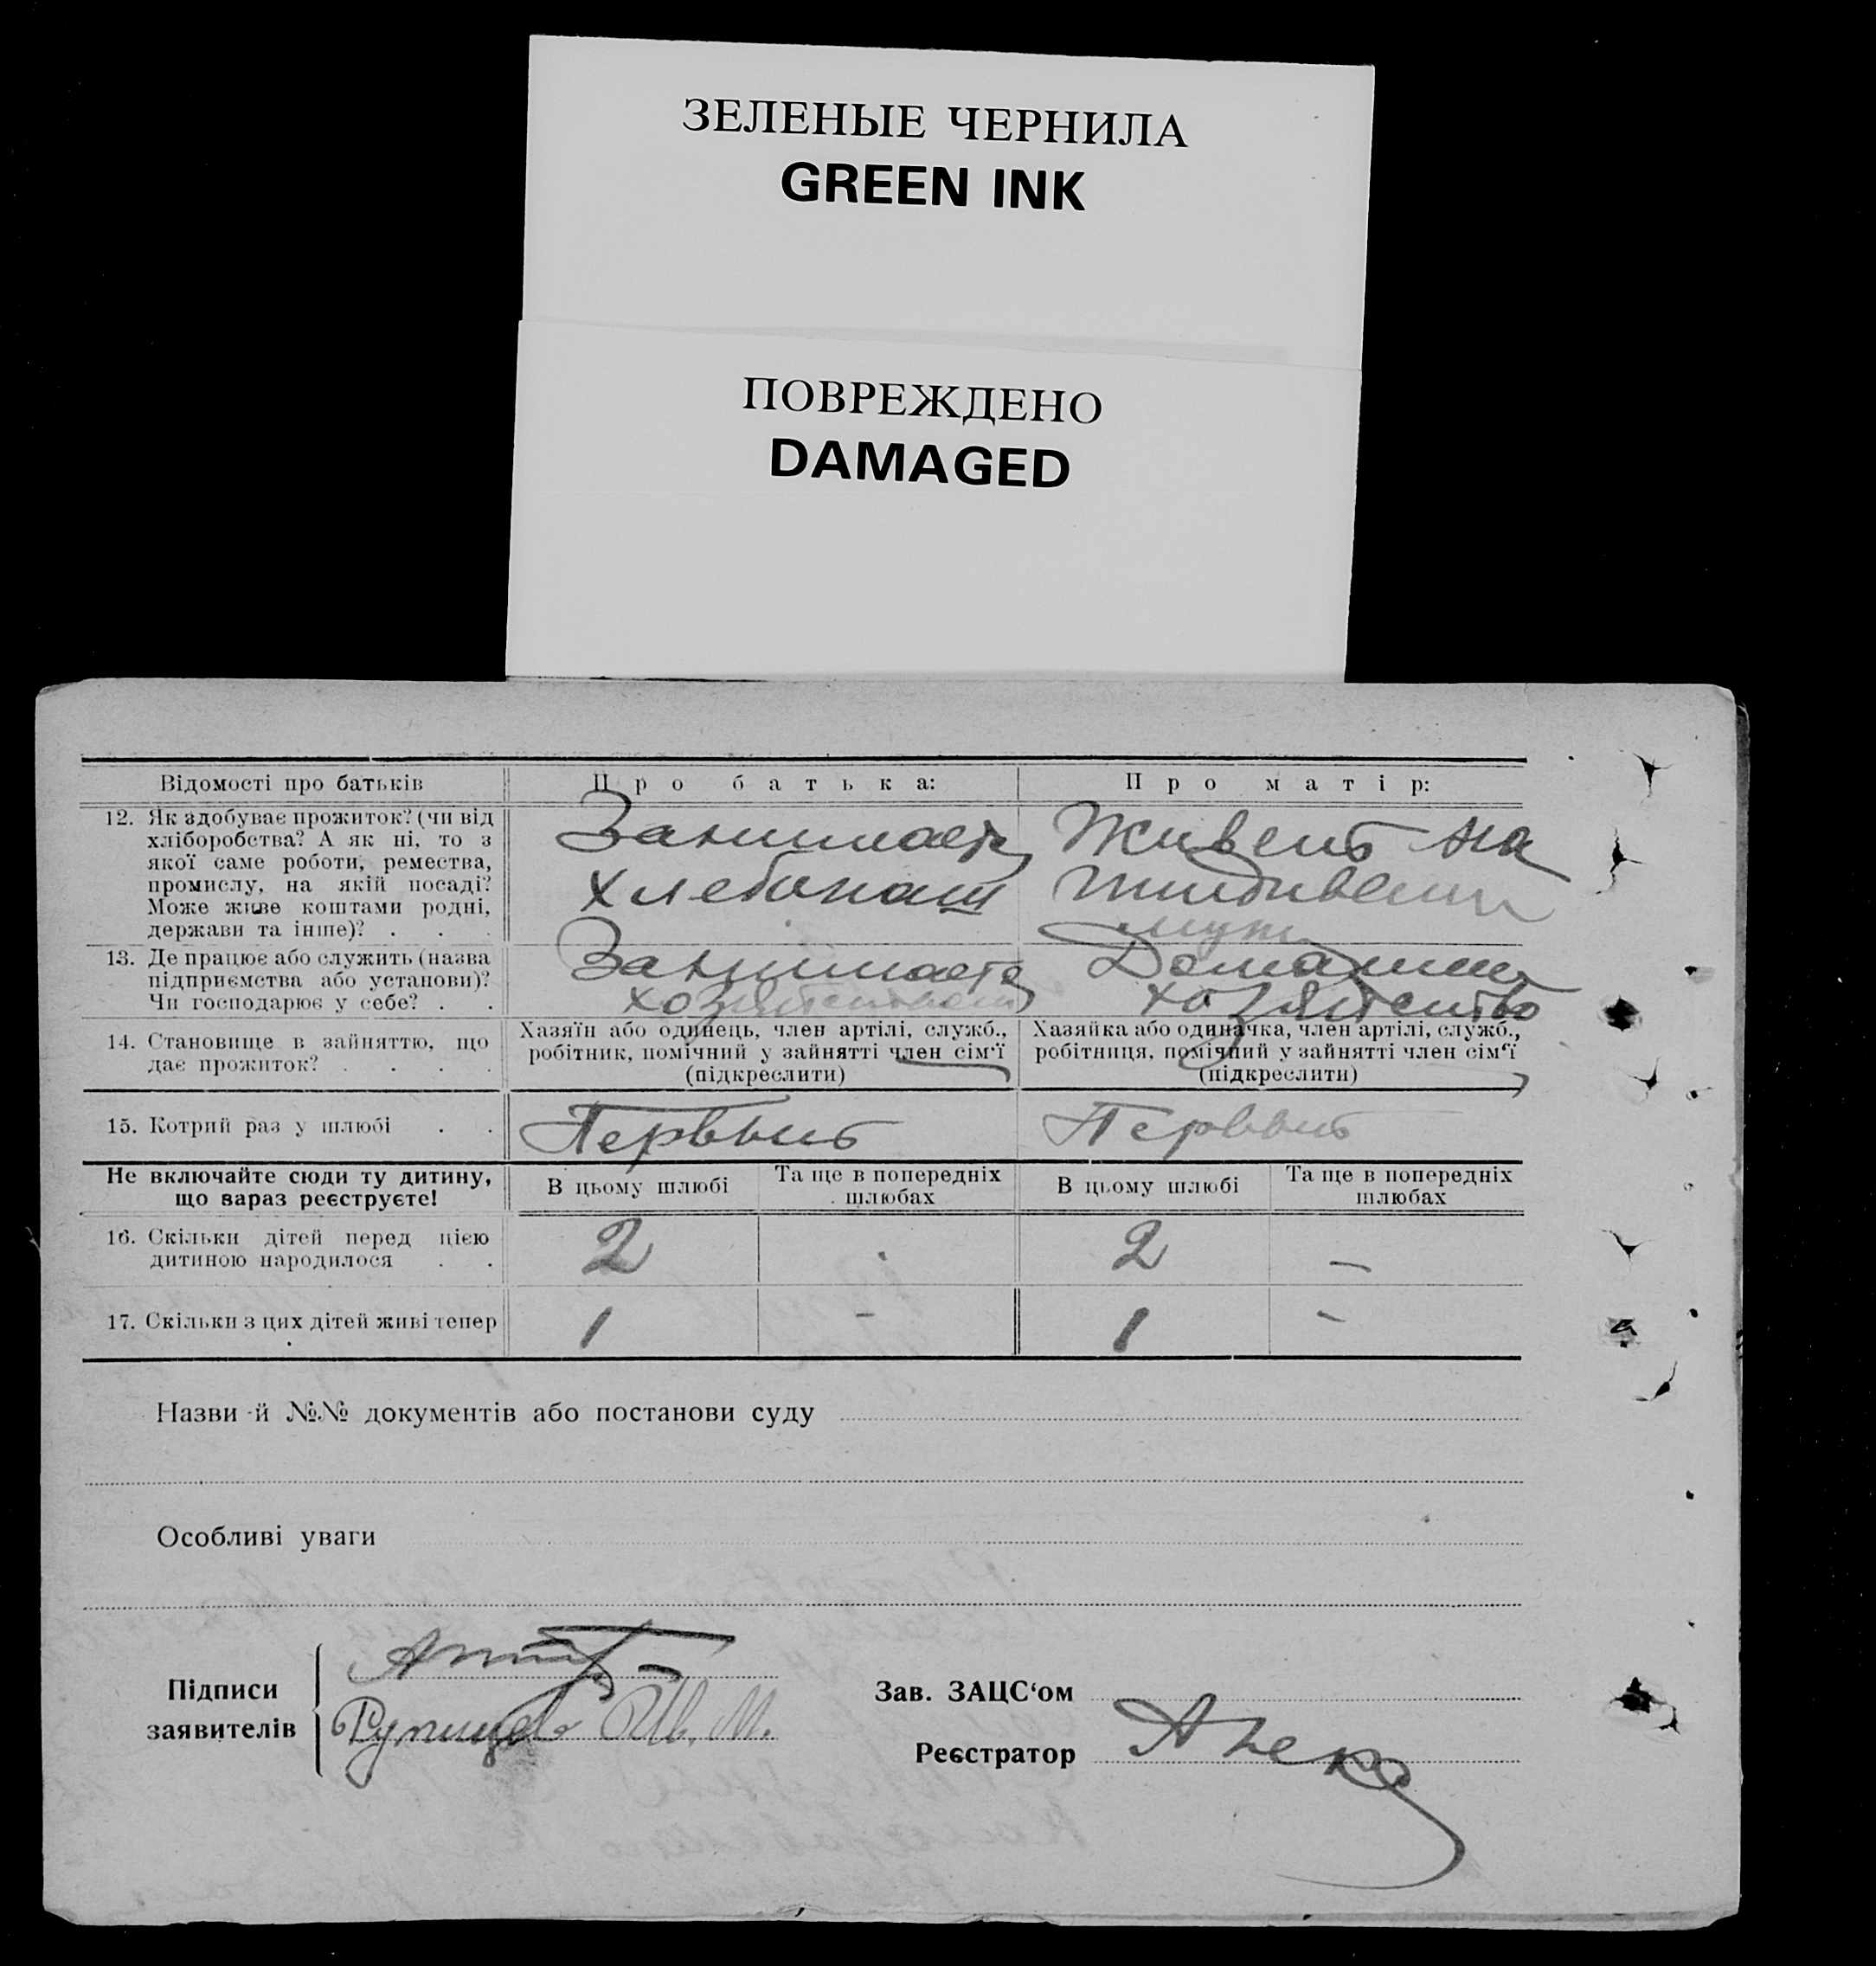 ЗЕЛЕНЫЕ ЧЕРНИЛА
GREEN INK
ПОВРЕЖДЕНО
DAMAGED
Відомості про батьків
Про батька:
Про матір:
12. Як здобуває прожиток? (чи від
хліборобства? А як ні, то з
якої саме роботи, ремества,
промислу, на якій посаді?
Може живе коштами родні,
держави та інше)? . . .
Занимаетя
хлебопаш
Живет на
иждивении
мужа
13. Де працює або служить (назва
підприємства або установи)?
Чи господарює у себе? . .
Занимаетя
хозяйством
Домашнее
хозяйство
14. Становище в зайняттю, що
дає прожиток? . . . .
Хазяїн або одинець, член артілі, служб.,
робітник, помічний у зайнятті член сім'ї
(підкреслити)
Хазяйка або одиначка, член артілі, служб.,
робітниця, помічний у зайнятті член сім'ї
(підкреслити)
15. Котрий раз у шлюбі . .
Первый
Первый
Не включайте сюди ту дитину,
що вараз реєструєте!
В цьому шлюбі
Та ще в попередніх
шлюбах
В цьому шлюбі
Та ще в попередніх
шлюбах
16. Скільки дітей перед цією
дитиною народилося . .
2
2
—
17. Скільки з цих дітей живі тепер
1
-
1
-
Назви й №№ документів або постанови суду
Особливі уваги
Підписи
заявителів
Ив. М.
Зав. ЗАЦС'ом
Реєстратор